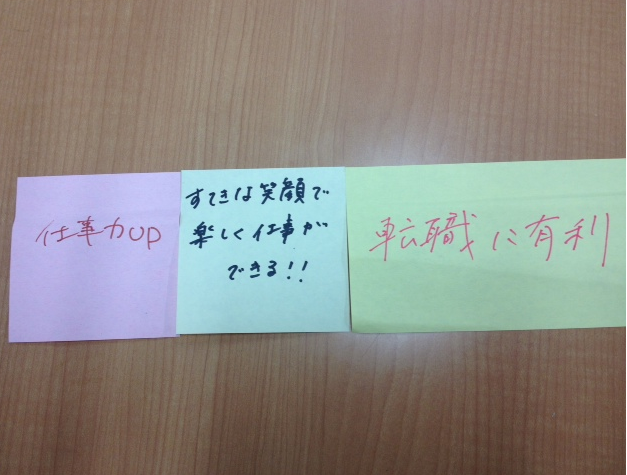 仕事力UP
すてきな笑顔で
楽しく仕事が
できる!!
転職に有利